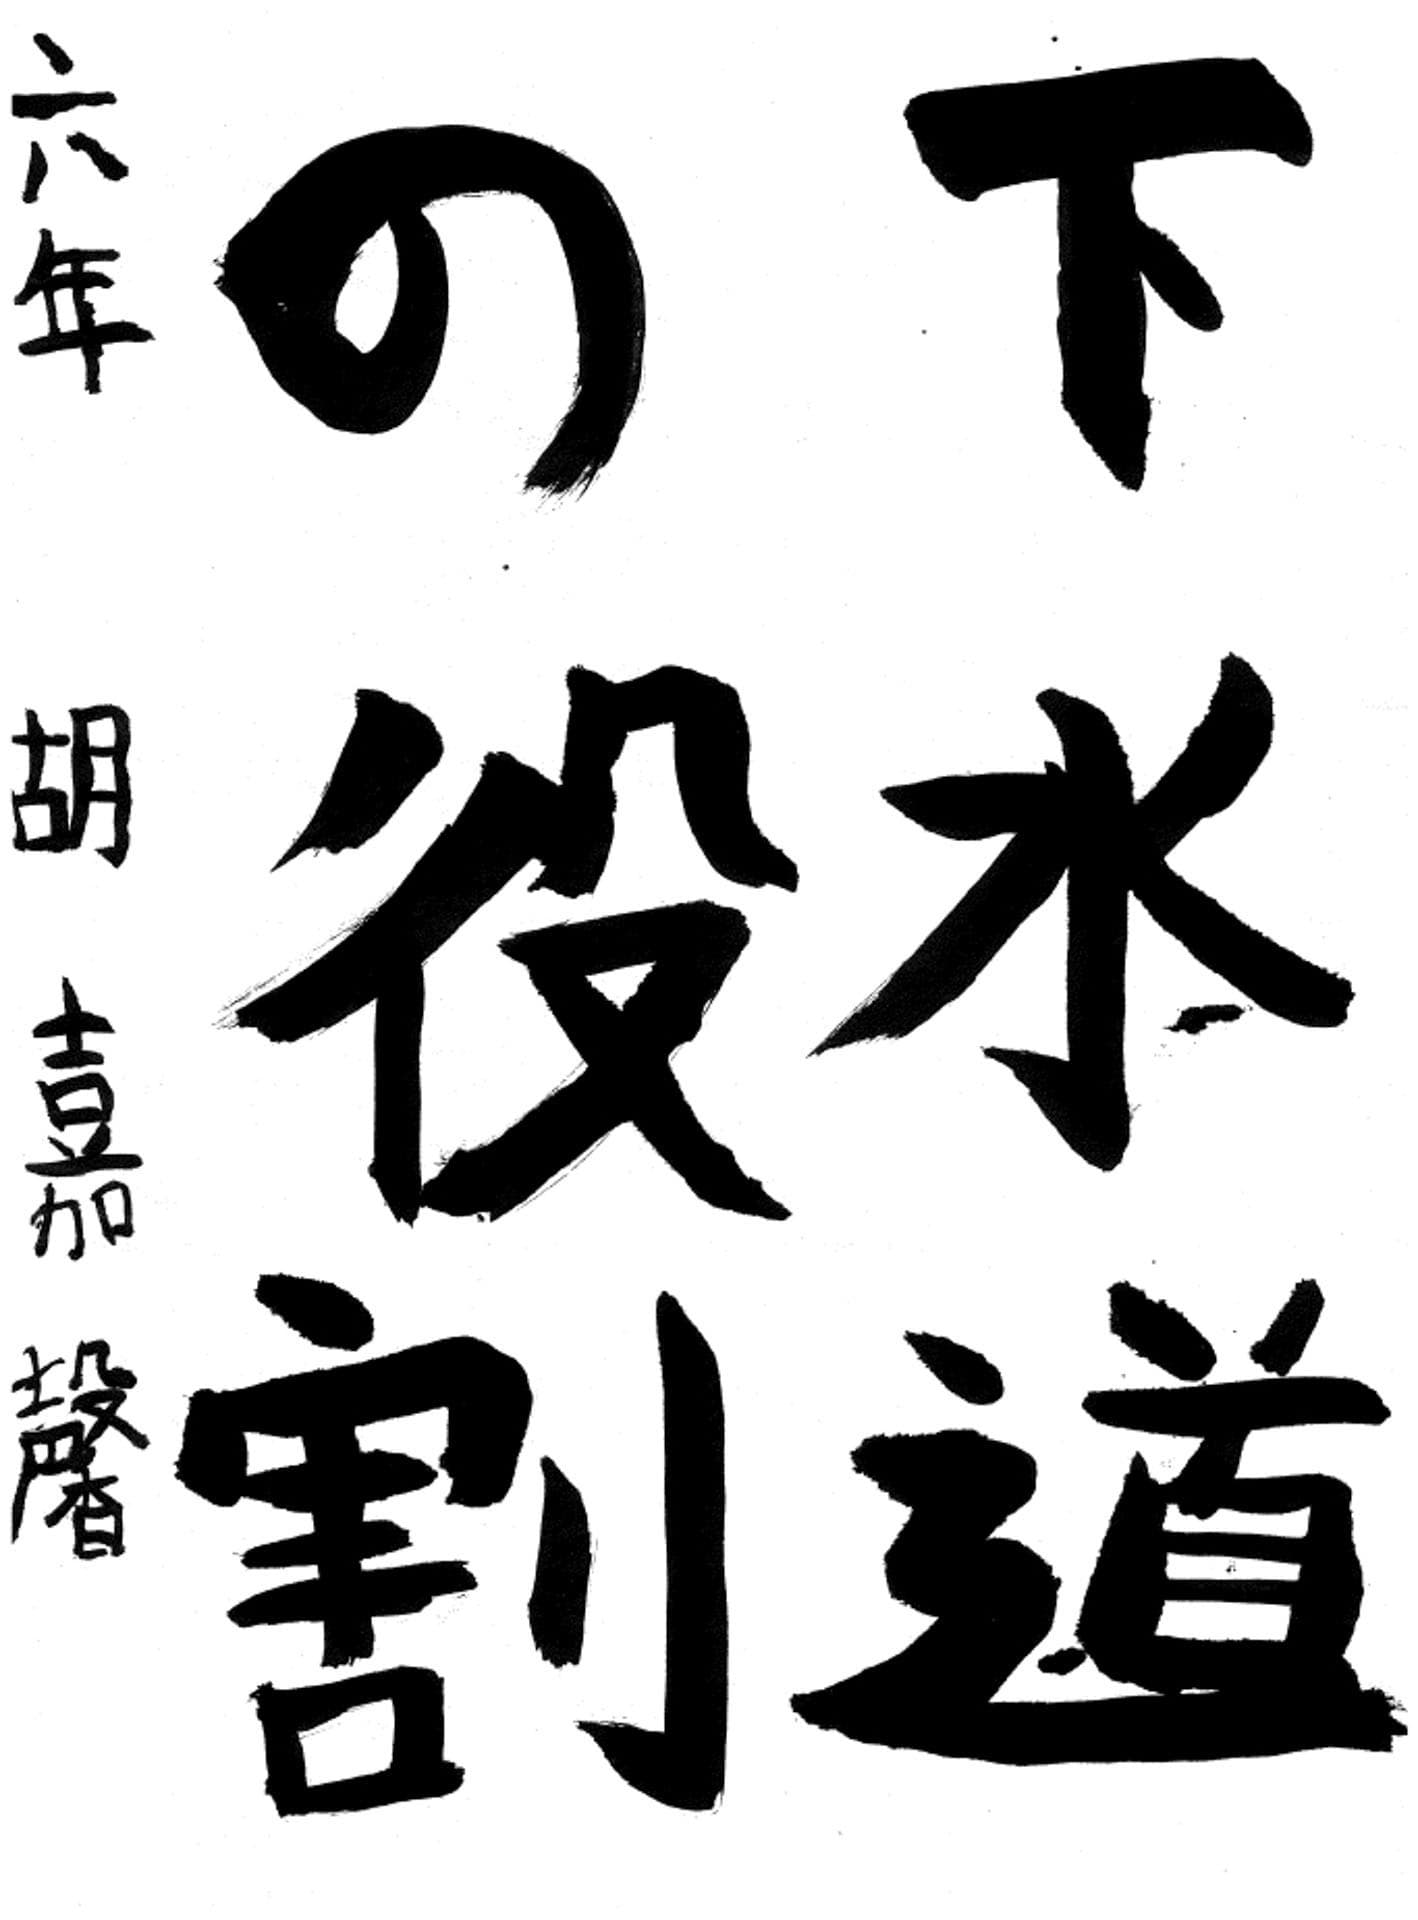 下水道
の役割
六年 胡 嘉馨